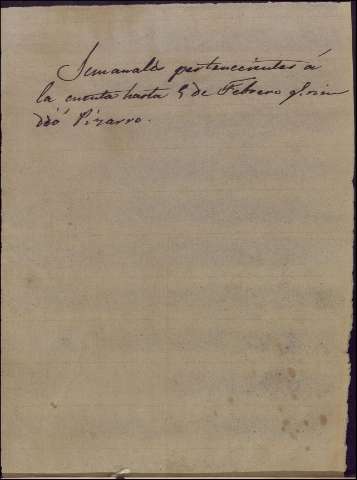 Semanales pertenecientes á
la cuenta hasta 5 de Febrero q. rin
dió Pizarro.